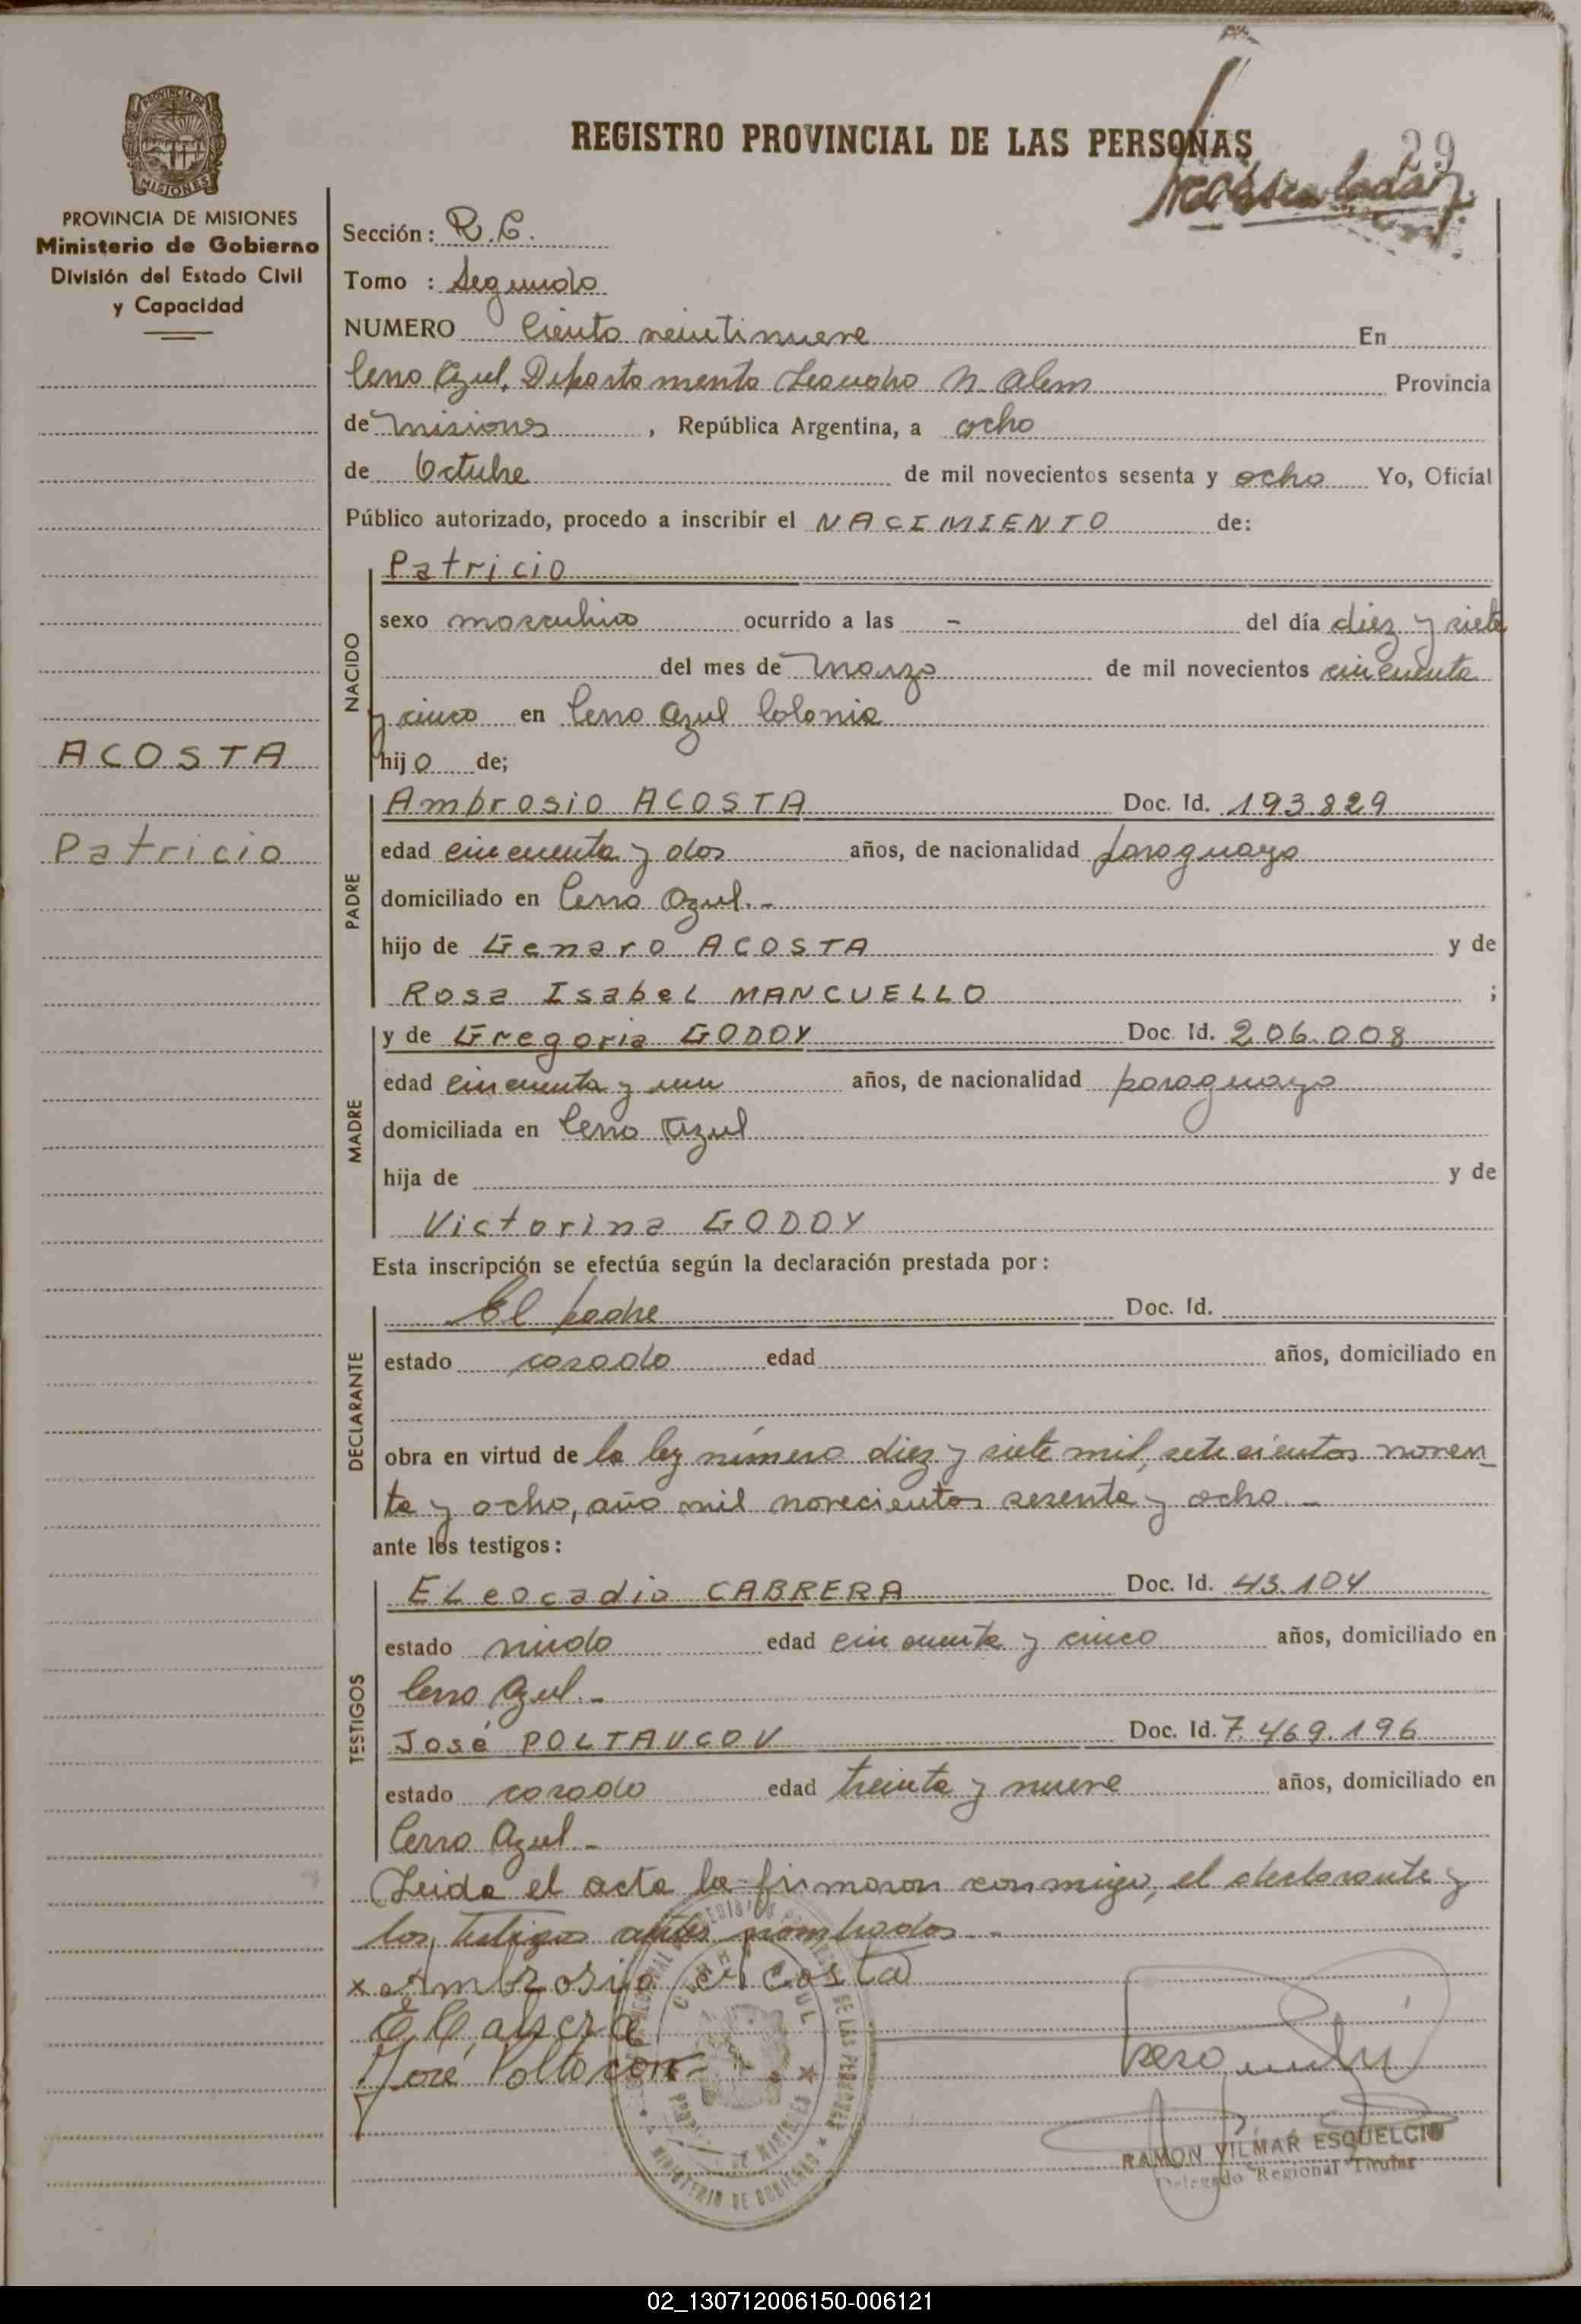 REGISTRO PROVINCIAL DE LAS PERSONAS
29
PROVINCIA DE MISIONES
Ministerio de Gobierno
División del Estado Civil
y Capacidad
ACOSTA
Patricio
Sección: R.C.
Tomo : Segundo
NUMERO Ciento veintinueve En
Cerro Azul, Departamento Leandro N. Alem Provincia
de Misiones, República Argentina, a ocho
de Octubre de mil novecientos sesenta y ocho Yo, Oficial
Público autorizado, procedo a inscribir el NACIMIENTO de:
NACIDO
Patricio
sexo masculino ocurrido a las - del día diez y siete
del mes de Marzo de mil novecientos cincuenta
y cinco en Cerro Azul Colonia
hijo de;
PADRE
Ambrosio ACOSTA Doc. Id. 193.829
edad cincuenta y dos años, de nacionalidad paraguaya
domiciliado en Cerro Azul.-
hijo de Genaro ACOSTA y de
Rosa Isabel MANCUELLO ;
MADRE
y de Gregoria GODOY Doc. Id. 206.008
edad cincuenta y un años, de nacionalidad paraguaya
domiciliada en Cerro Azul
hija de y de
Victorina GODOY
Esta inscripción se efectúa según la declaración prestada por:
DECLARANTE
El padre Doc. Id.
estado casado edad años, domiciliado en
obra en virtud de la ley número diez y siete mil, setecientos noven_
ta y ocho, año mil novecientos sesenta y ocho.-
ante los testigos:
TESTIGOS
ELeocadio CABRERA Doc. Id. 43.104
estado viudo edad cincuenta y cinco años, domiciliado en
Cerro Azul.-
José POLTAVCOV Doc. Id. 7.469.196
estado casado edad treinta y nueve años, domiciliado en
Cerro Azul-
Leida el acta la firmaron conmigo, el declarante y
los testigos antes nombrados.-
x Ambrosio Acosta
E C abrera
José Poltavcov
RAMON VILMAR ESQUELCIO
Delegado Regional Titular
02_130712006150-006121